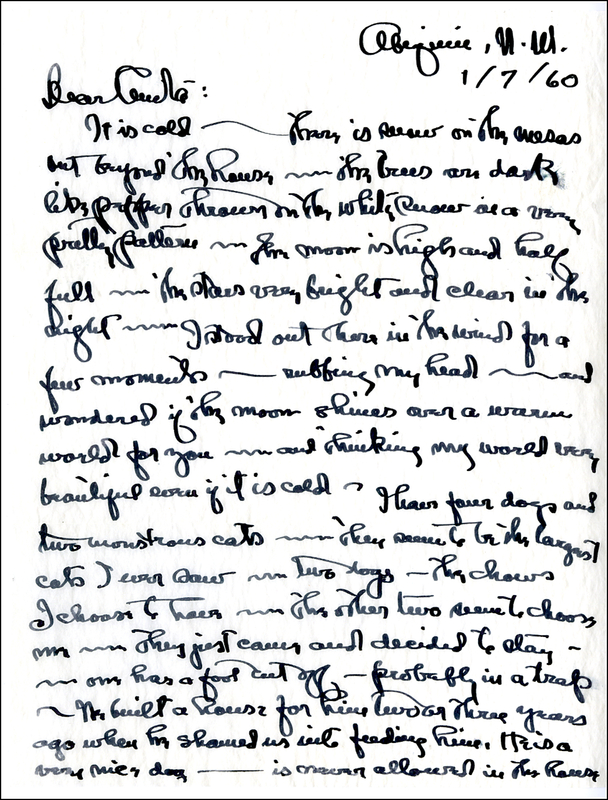 Abiquiu, N.M.
1/7/60
Dear Anita:
It is cold — there is snow on the mesas
out beyond the house ~ the trees are dark
like pepper thrown on the white snow in a very
pretty pattern ~ The moon is high and half
full ~ the stars very bright and clear in the
night ~ I stood out there in the wind for a
few moments — rubbing my head ~ and
wondered if the moon shines over a warm
world for you ~ and thinking my world very
beautiful even if it is cold ~ I have four dogs and
two monstrous cats ~ They seem to be the largest
cats I ever saw ~ two dogs — the chows
I choose to have ~ the other two seem to choose
me ~ They just came and decided to stay ~
~ one has a foot cut off — probably in a trap
~ We built a house for him two or three years
ago when he shamed us into feeding him. He is a
very nice dog — is never allowed in the house